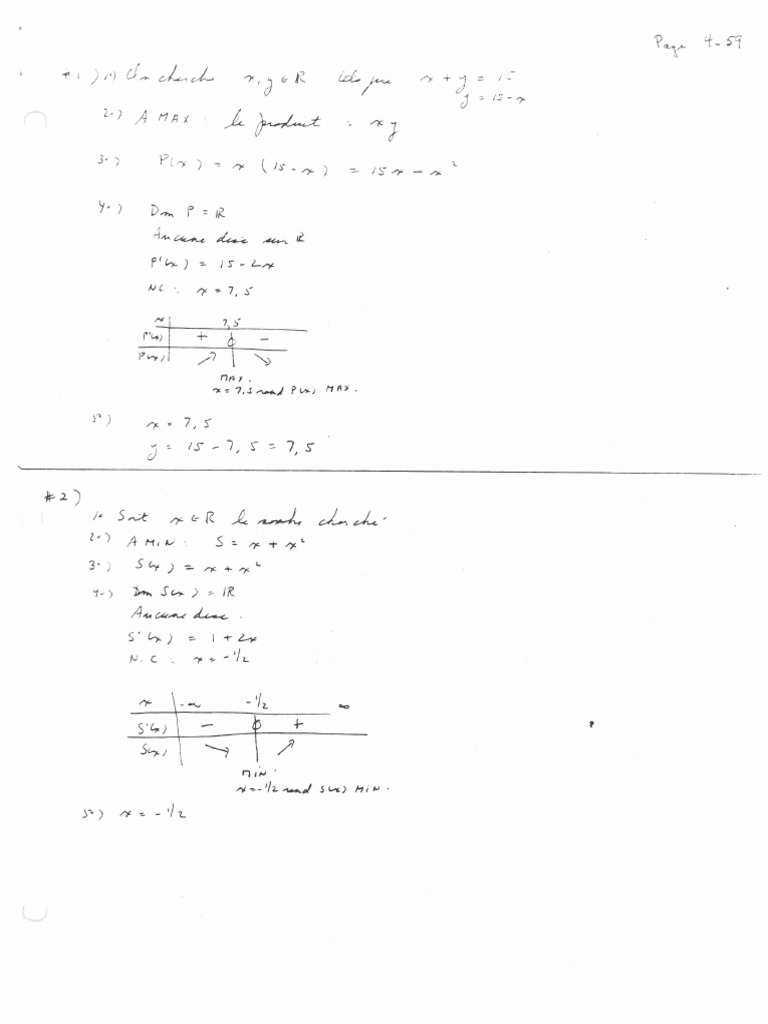 Page 4-59
#1) 1°) On cherche x, y ∈ ℝ tels que x + y = 15
y = 15 - x
2°) A MAX : le produit : xy
3°) P(x) = x (15 - x) = 15x - x²
4°) Dom P = ℝ
Aucune disc sur ℝ
P'(x) = 15 - 2x
NC : x = 7,5
x 7,5
P'(x) + 0 -
P(x) ↗ ↘
MAX.
x = 7,5 rend P(x) MAX.
5°) x = 7,5
y = 15 - 7,5 = 7,5
#2)
1° Soit x ∈ ℝ le nombre cherché
2°) A MIN : S = x + x²
3°) S(x) = x + x²
4°) Dom S(x) = ℝ
Aucune disc.
S'(x) = 1 + 2x
N.C : x = -1/2
x -∞ -1/2 ∞
S'(x) - 0 +
S(x) ↘ ↗
MIN.
x = -1/2 rend S(x) MIN.
5°) x = -1/2